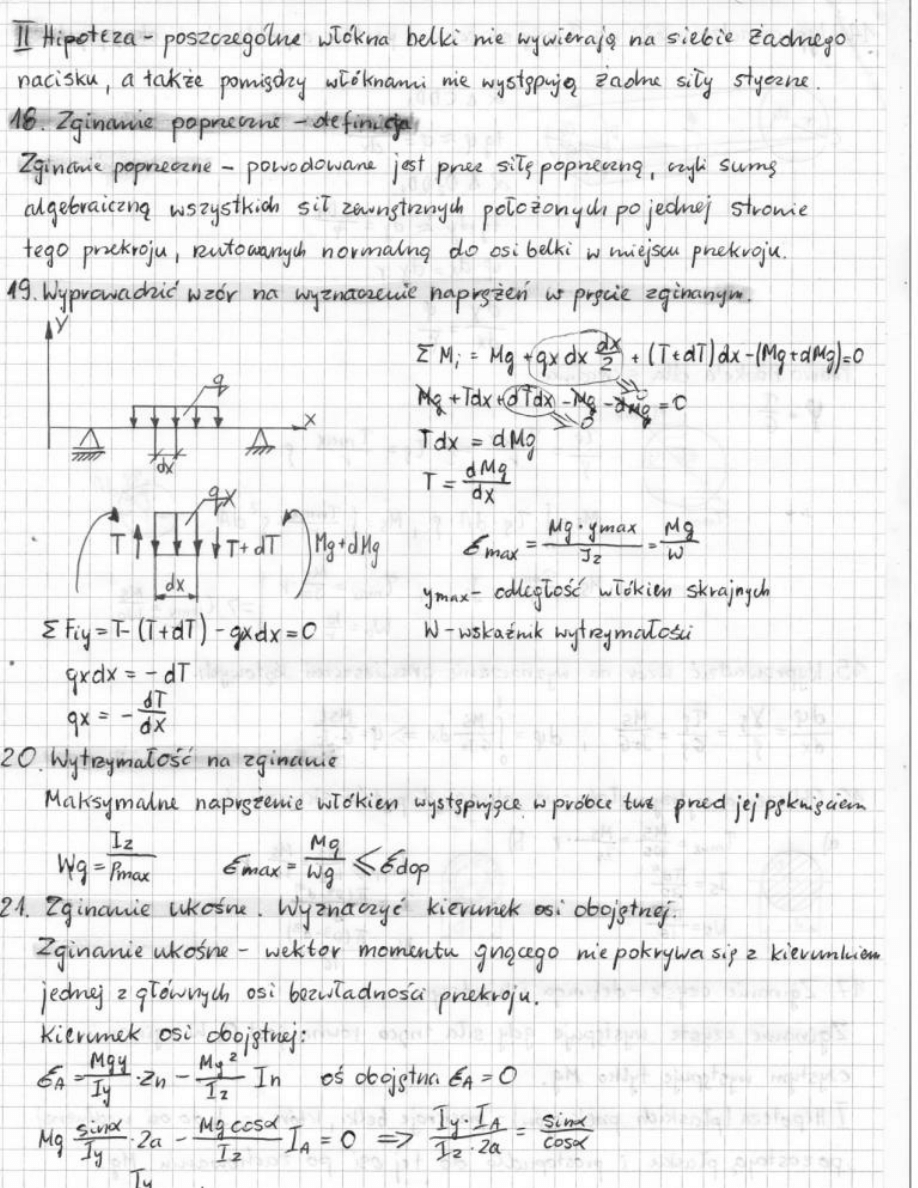 II Hipoteza - poszczególne włókna belki nie wywierają na siebie żadnego
nacisku, a także pomiędzy włóknami nie występują żadne siły styczne.
18. Zginanie poprzeczne - definicja
Zginanie poprzeczne - powodowane jest przez siłę poprzeczną, czyli sumę
algebraiczną wszystkich sił zewnętrznych położonych po jednej stronie
tego przekroju, rzutowanych normalną do osi belki w miejscu przekroju.
19. Wyprowadzić wzór na wyznaczenie naprężeń w pręcie zginanym.
Y
q
X
dx
Σ Mi = Mg + qx dx dx/2 + (T+dT) dx - (Mg+dMg) = 0
0
Mg + Tdx + dTdx - Mg - dMg = 0
0
Tdx = dMg
T = dMg/dx
qx
T
T+dT
Mg+dMg
dx
Σ Fiy = T - (T+dT) - qxdx = 0
qxdx = - dT
qx = - dT/dx
σmax = Mg · ymax / Iz = Mg/W
ymax - odległość włókien skrajnych
W - wskaźnik wytrzymałości
20. Wytrzymałość na zginanie
Maksymalne naprężenie włókien występujące w próbce tuż przed jej pęknięciem
Wg = Iz/ρmax σmax = Mg/Wg ≤ σdop
21. Zginanie ukośne. Wyznaczyć kierunek osi obojętnej.
Zginanie ukośne - wektor momentu gnącego nie pokrywa się z kierunkiem
jednej z głównych osi bezwładności przekroju.
Kierunek osi obojętnej:
σA = Mgy/Iy · Zn - Mg²/Iz In oś obojętna σA = 0
Mg sinα/Iy · 2a - Mg cosα/Iz IA = 0 => Iy · IA / Iz · 2a = sinα/cosα
Iy